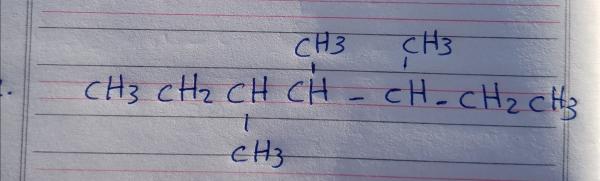 CH3 CH3
CH3 CH2 CH CH - CH - CH2 CH3
CH3